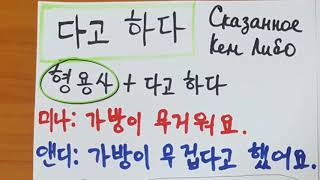 다고 하다
Сказанное
Кем Либо
형용사 + 다고 하다
미나: 가방이 무거워요.
앤디: 가방이 무겁다고 했어요.